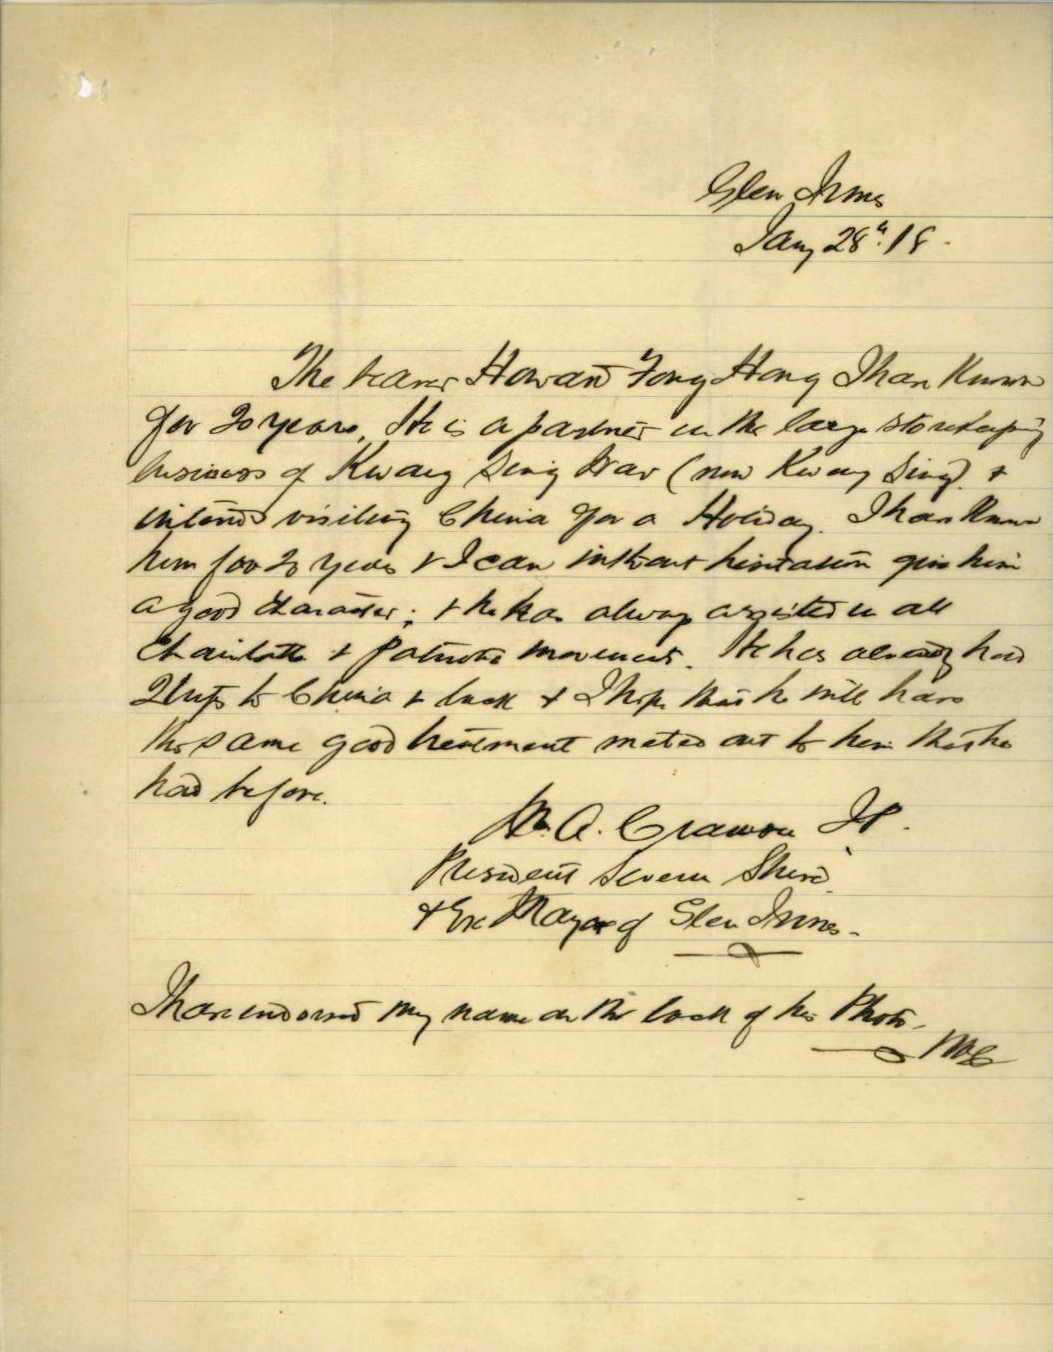 Glen Innes
Jany 28th. 18.
The bearer Howard Fong Hong I have known
for 20 years, He is a partner in the large storekeeping
business of Kwong Sing War (now Kwong Sing) &
intends visiting China for a Holiday. I have known
him for 20 years & I can without hesitation give him
a good character; & he has always assisted in all
Charitable & Patriotic movements. He has already had
2 trips to China & back & I hope that he will have
the same good treatment meted out to him that he
had before.
JP.
President Severn Shire
& Ex Mayor of Glen Innes.
I have endorsed my name on the back of his Photo.